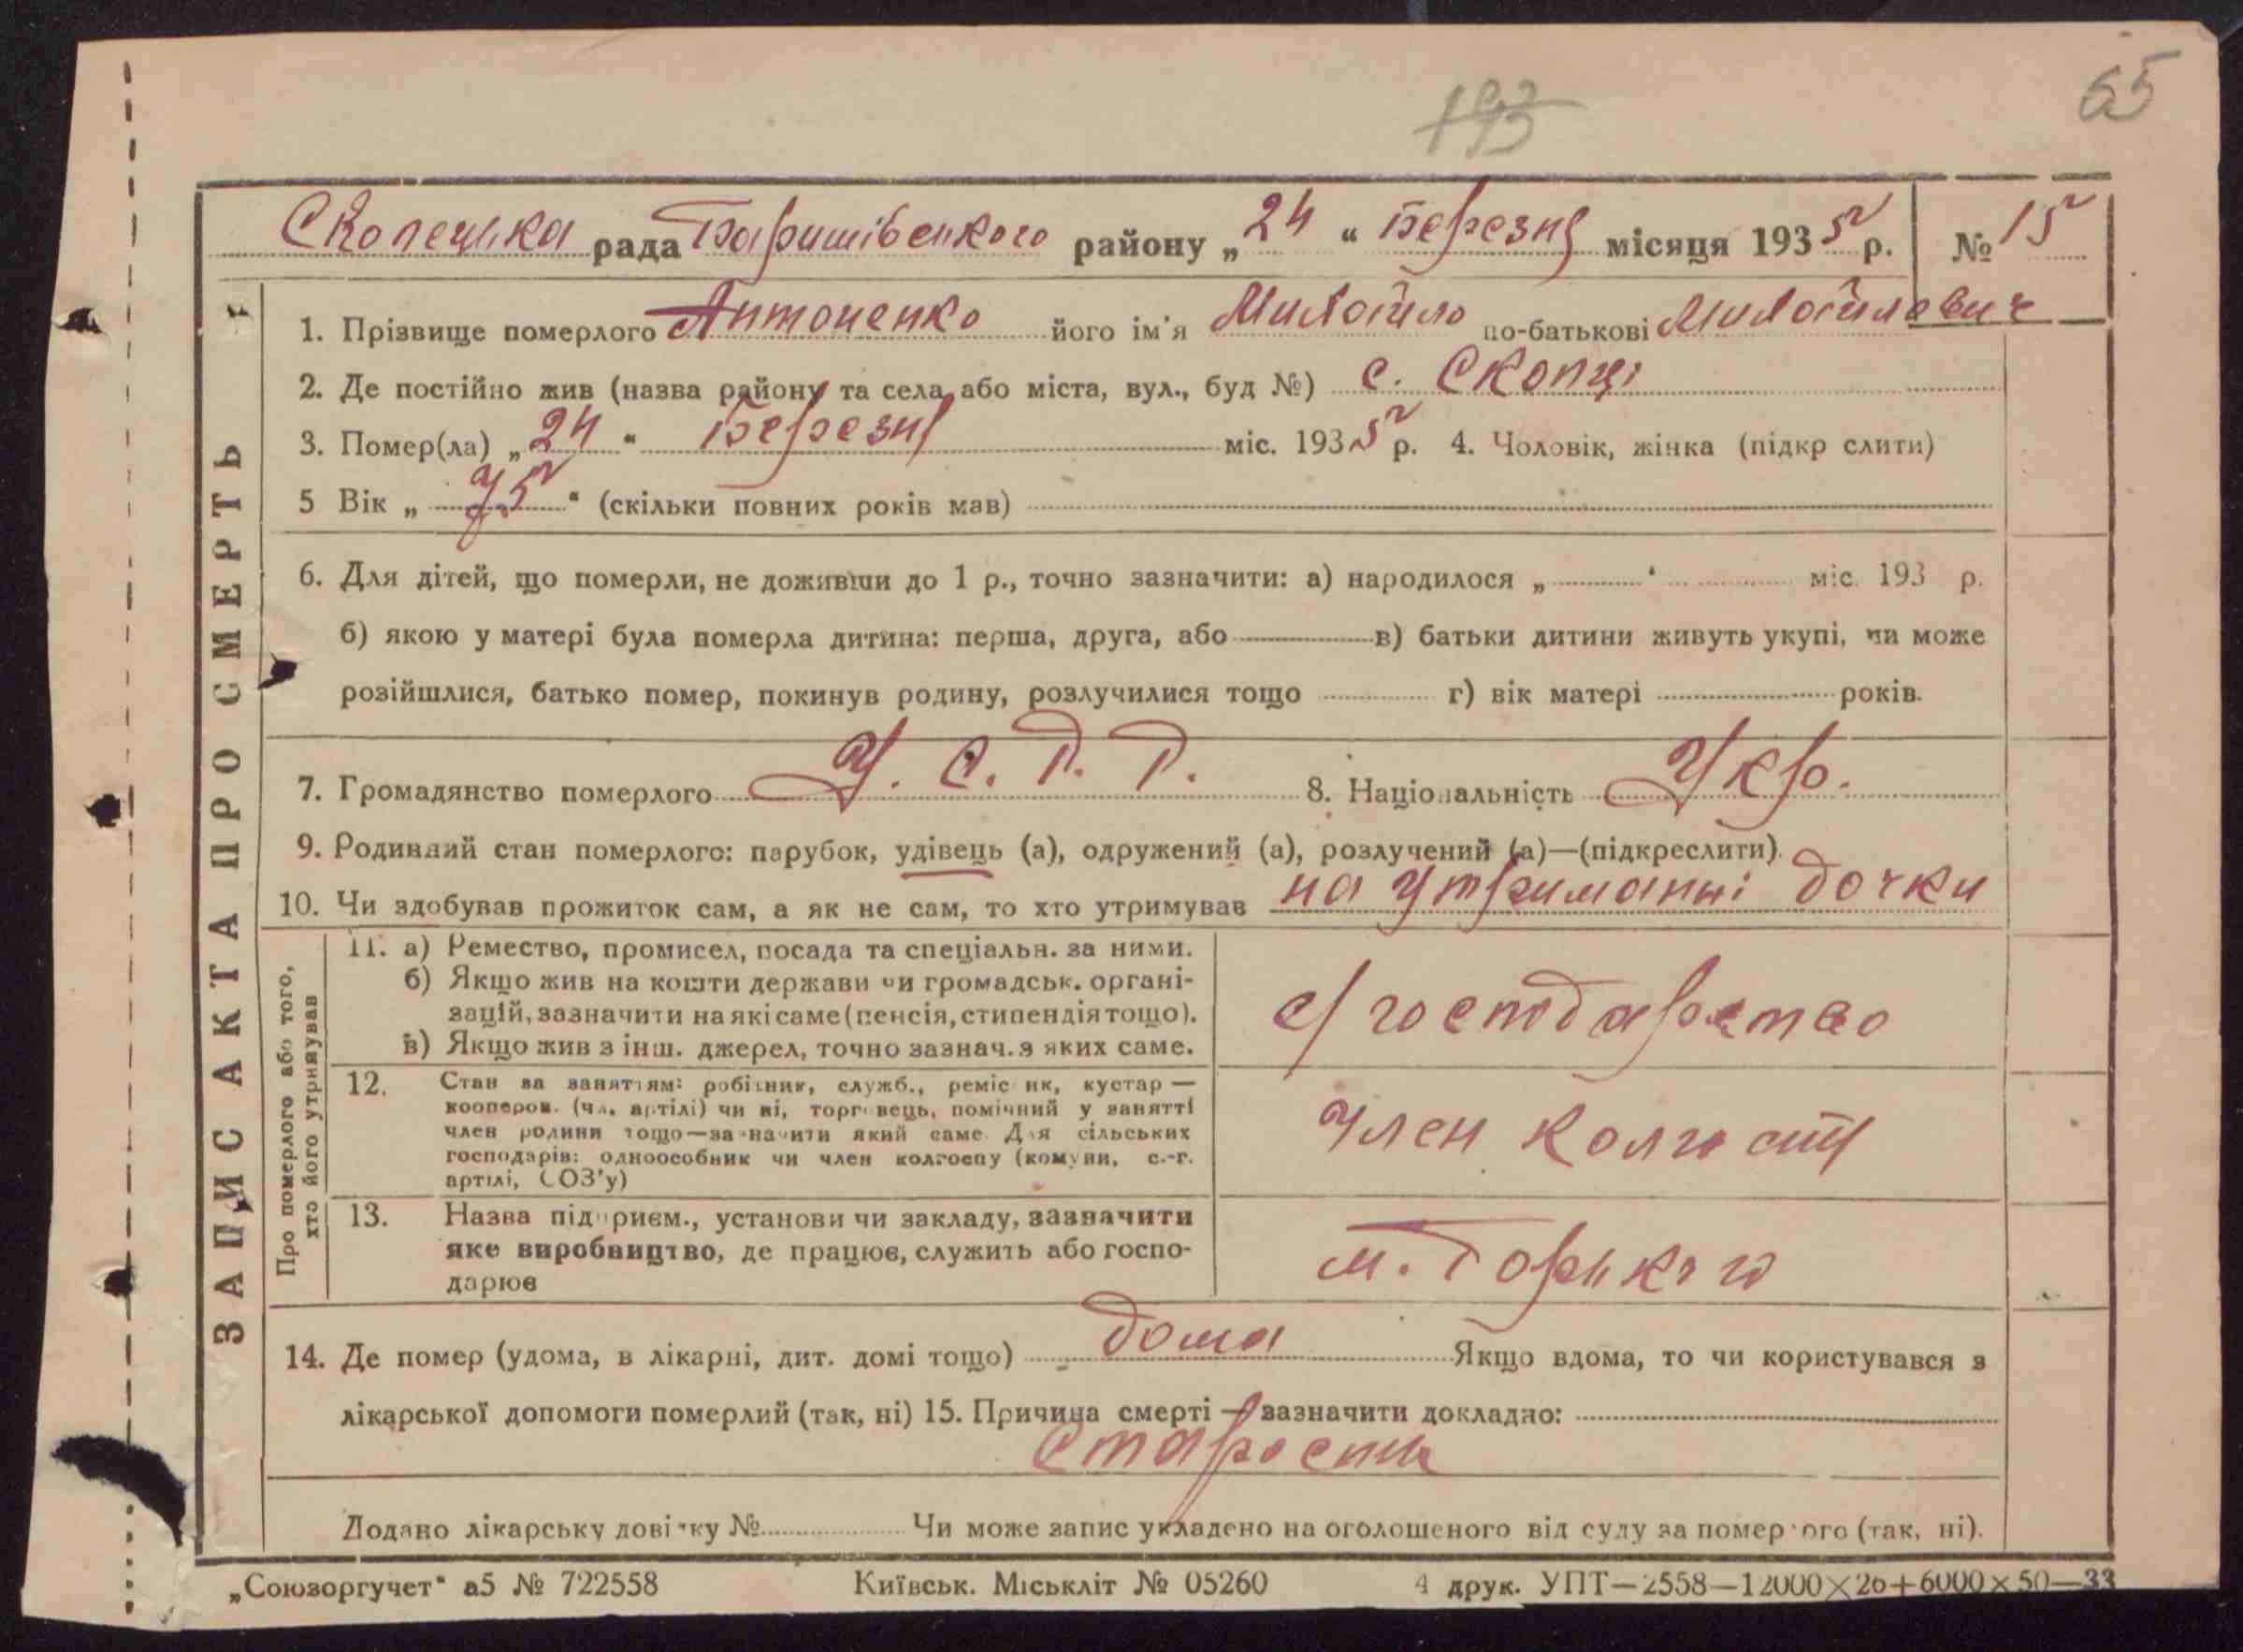 193
65
Скопецька рада Баришівського району „24“ березня місяця 1935 р. № 15
1. Прізвище померлого Антоненко його ім'я Михайло по-батькові Михайлович
2. Де постійно жив (назва району та села або міста, вул., буд №) с. Скопці
3. Помер(ла) „24“ березня міс. 1935 р. 4. Чоловік, жінка (підкр слити)
5 Вік „75“ (скільки повних років мав)
6. Для дітей, що померли, не доживши до 1 р., точно зазначити: а) народилося „ “ міс. 193 р.
б) якою у матері була померла дитина: перша, друга, або в) батьки дитини живуть укупі, чи може
розійшлися, батько помер, покинув родину, розлучилися тощо г) вік матері років.
7. Громадянство померлого У. С. Р. Р. 8. Національність Укр.
9. Родинний стан померлого: парубок, удівець (а), одружений (а), розлучений (а)—(підкреслити).
10. Чи здобував прожиток сам, а як не сам, то хто утримував на утриманні дочки
ЗАПИС АКТА ПРО СМЕРТЬ
Про померлого або того,
хто його утримував
11. а) Ремество, промисел, посада та спеціальн. за ними.
б) Якщо жив на кошти держави чи громадськ. органі-
зацій, зазначити на які саме (пенсія, стипендія тощо).
в) Якщо жив з інш. джерел, точно зазнач. з яких саме.
с/господарство
12. Стан за заняттям: робітник, служб., реміс ник, кустар —
кооперов. (чл. артілі) чи ні, торговець, помічний у занятті
член родини тощо—зазначити який саме. Для сільських
господарів: одноособник чи член колгоспу (комуни, с.-г.
артілі, СОЗ'у)
член колгоспу
13. Назва підприєм., установи чи закладу, зазначити
яке виробництво, де працює, служить або госпо-
дарює
м. Горького
14. Де помер (удома, в лікарні, дит. домі тощо) дома Якщо вдома, то чи користувався з
лікарської допомоги померлий (так, ні) 15. Причина смерті — зазначити докладно:
старость
Додано лікарську довідку № Чи може запис укладено на оголошеного від суду за померлого (так, ні).
„Союзоргучет“ а5 № 722558 Київськ. Міськліт № 05260 4 друк. УПТ—2558—12000×26+6000×50—33